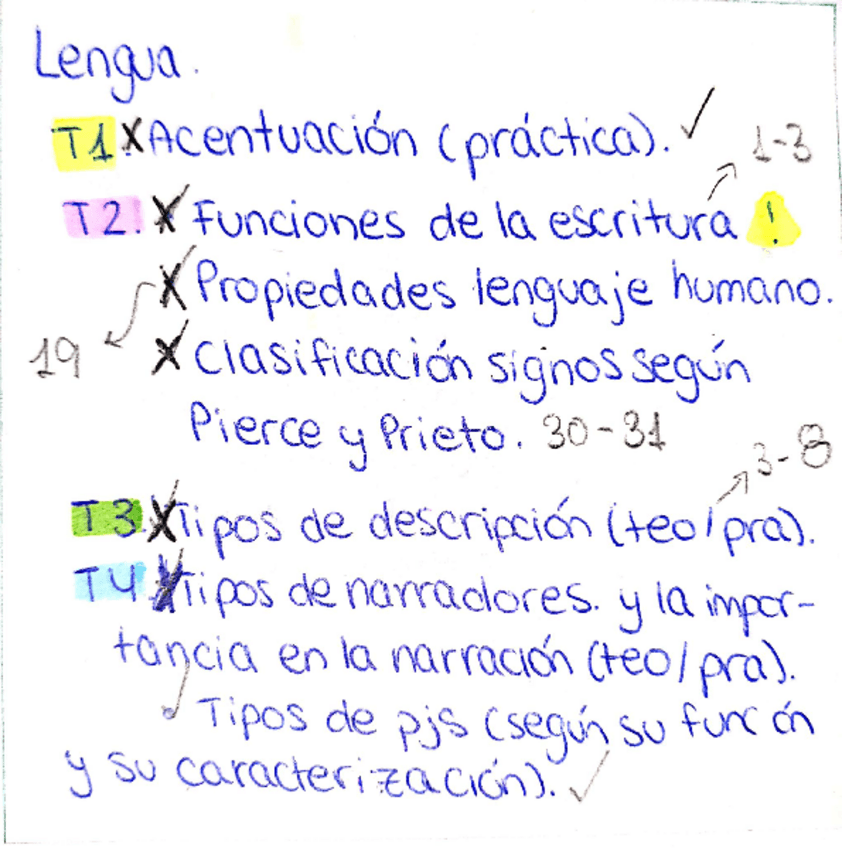 Lengua.
T1 X Acentuación (práctica). ✓
1-3
T2. X Funciones de la escritura !
X Propiedades lenguaje humano.
19 X Clasificación signos según
Pierce y Prieto. 30-31
3-8
T3 X Tipos de descripción (teo/pra).
T4 X Tipos de narradores. y la impor-
tancia en la narración (teo/pra).
✓ Tipos de pjs (según su función
y su caracterización). ✓